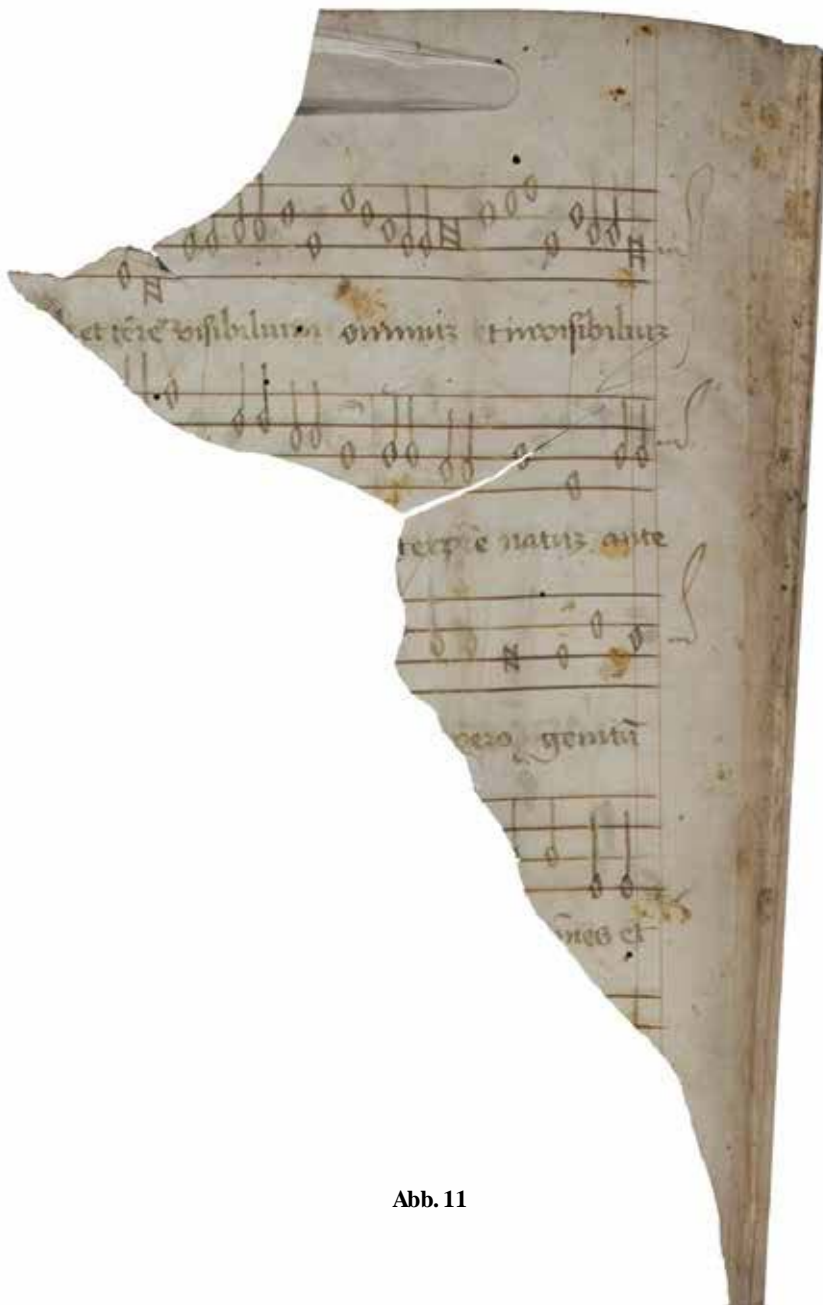 et terre visibilium omniuz et invisibiliuz
natuz ante
vero genitū
et
Abb. 11